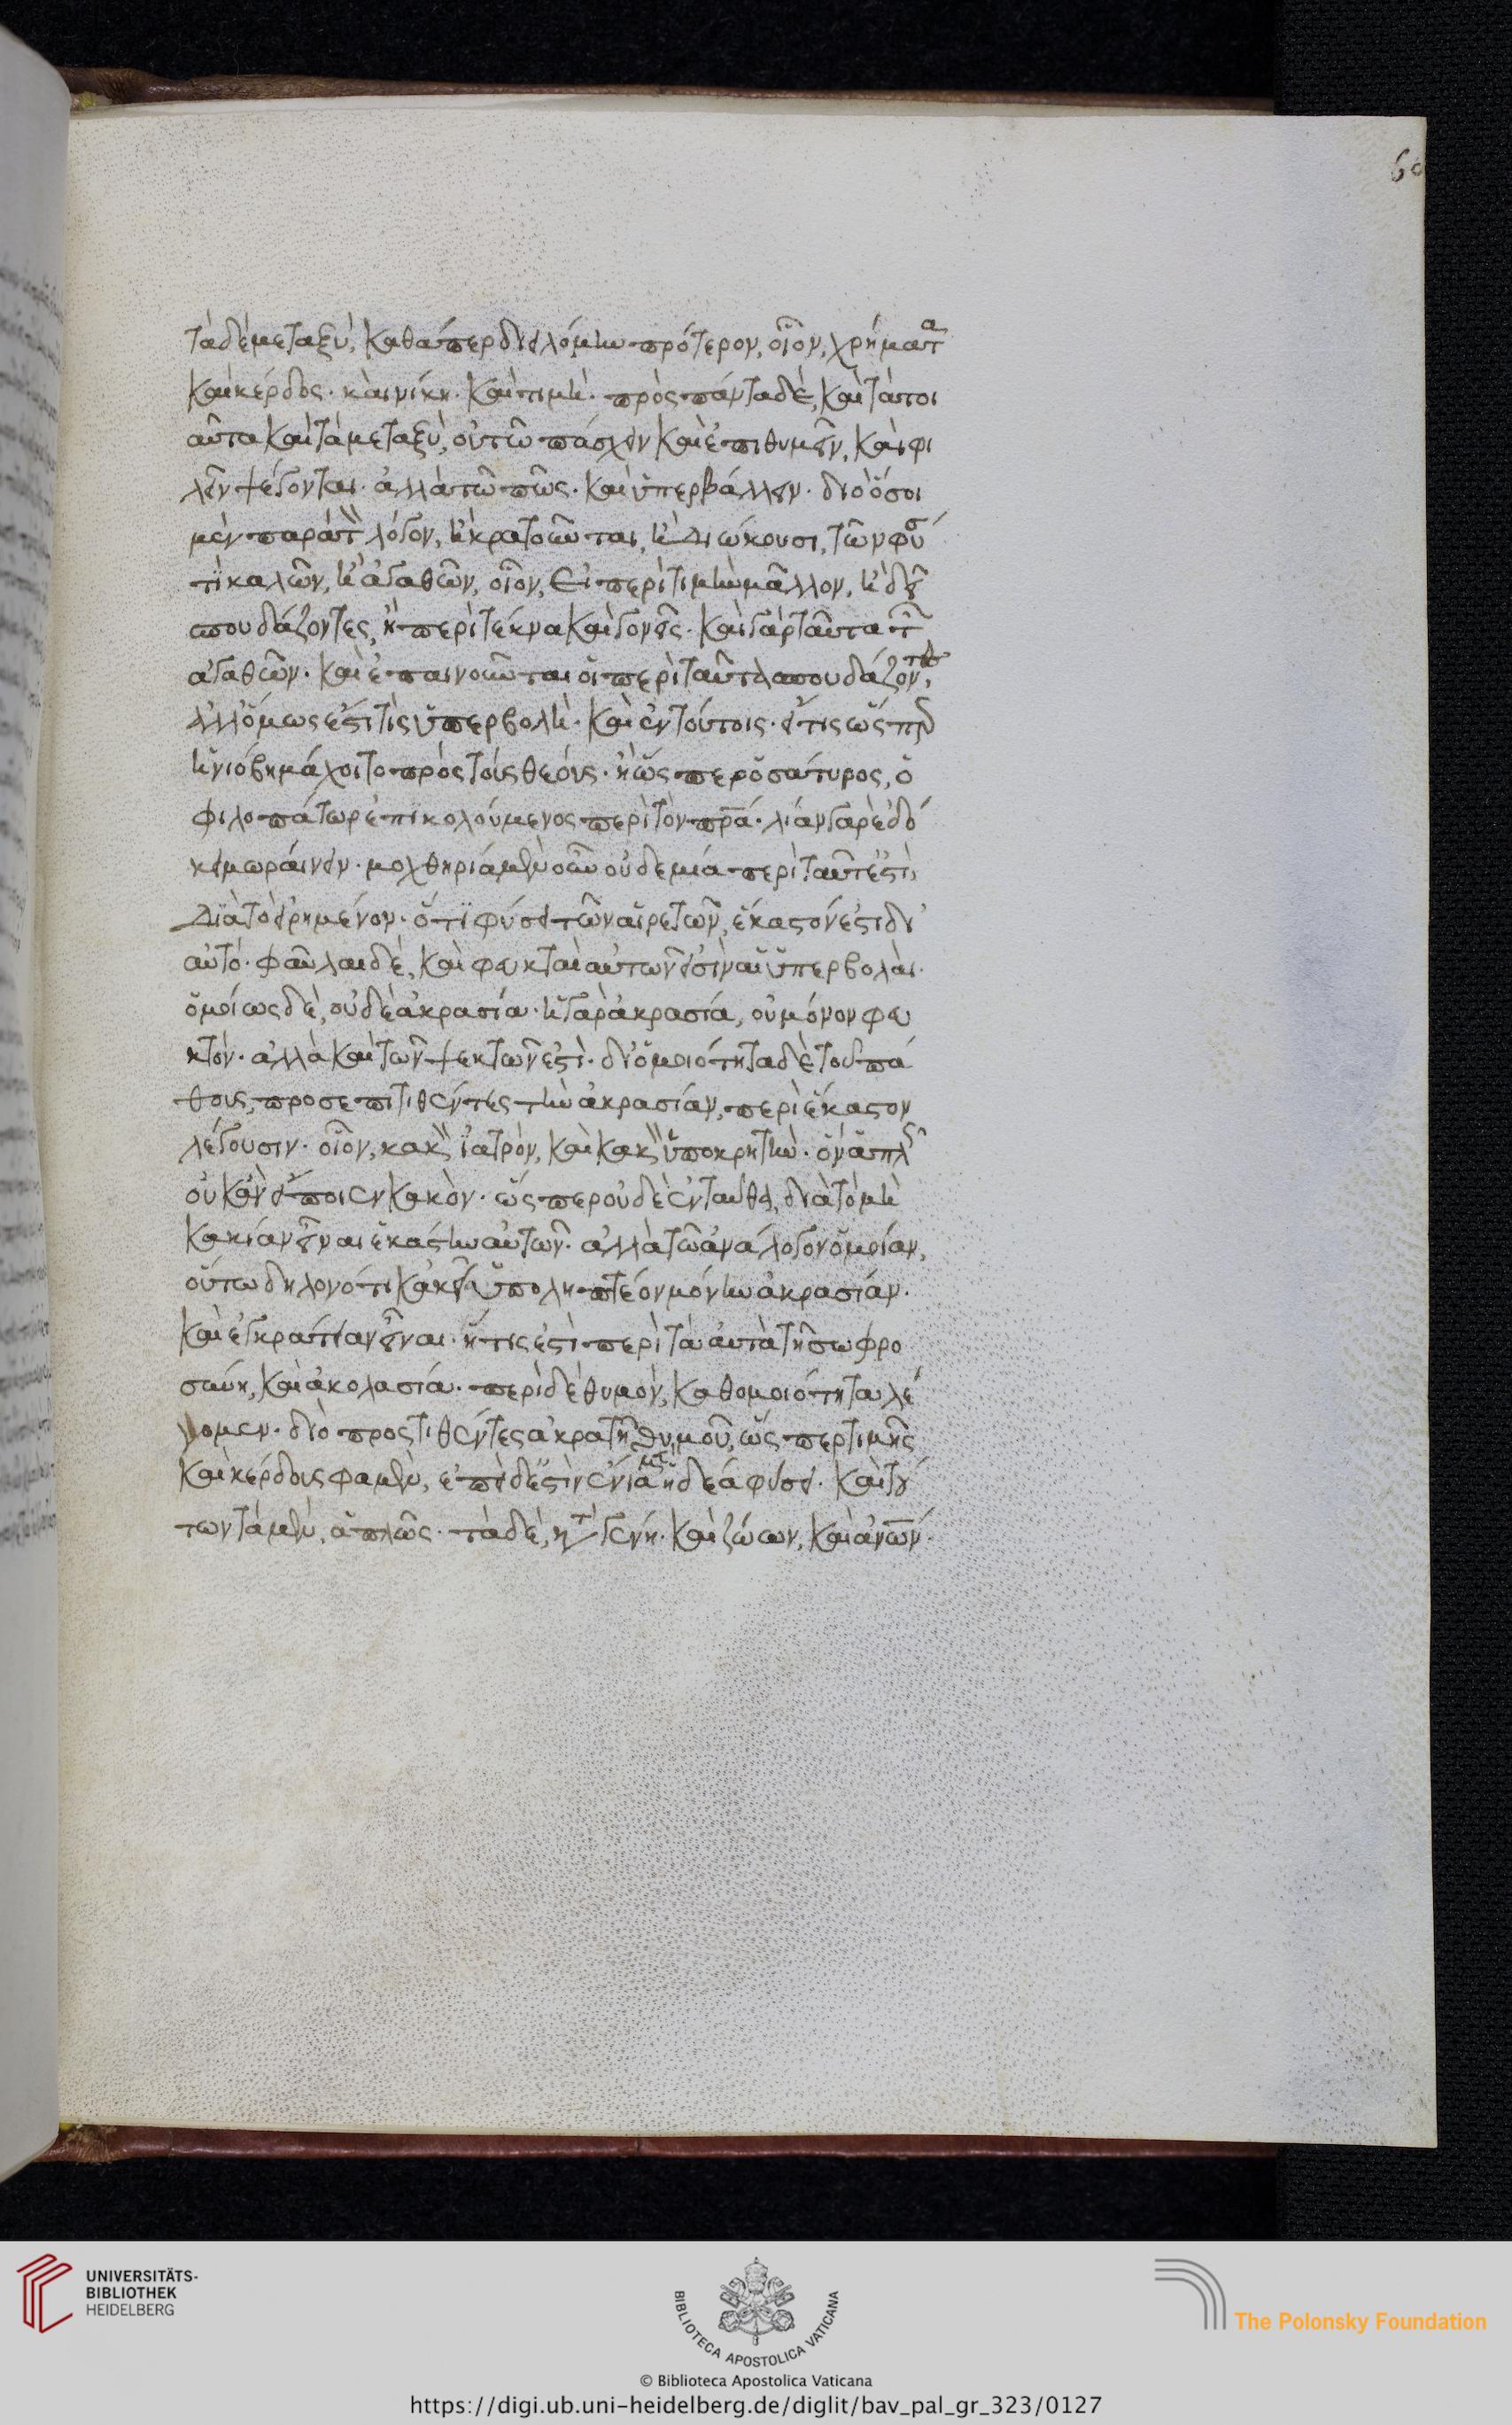 60
τὰ δὲ μεταξύ, καθάπερ διείλομεν πρότερον, οἷον, χρήματα
καὶ κέρδος. καὶ νίκη. καὶ τιμή. πρὸς πάντα δὲ, καὶ τὰ τοι
αῦτα καὶ τὰ μεταξὺ, οὐ τῶ πάσχειν καὶ ἐπιθυμεῖν, καὶ φι
λεῖν ψέγονται. ἀλλὰ τῶ πῶς. καὶ ὑπερβάλλειν. διὸ ὅσοι
μὲν παρὰ τὸν λόγον, ἢ κρατοῦνται, ἢ διώκουσι, τῶν φύσει
τὶ καλῶν, ἢ ἀγαθῶν, οἷον, οἱ περὶ τιμὴν μᾶλλον, ἢ δεῖ
σπουδάζοντες, ἢ περὶ τέκνα καὶ γονεῖς. καὶ γὰρ ταῦτα τῶν
ἀγαθῶν. καὶ ἐπαινοῦνται οἱ περὶ ταῦτα σπουδάζοντες,
ἀλλ' ὅμως ἐστί τις ὑπερβολὴ. καὶ ἐν τούτοις. εἴ τις ὥσπερ
ἡ νιόβη μάχοιτο πρὸς τοὺς θεούς. ἢ ὥσπερ ὁ σάτυρος, ὁ
φιλοπάτωρ ἐπικαλούμενος περὶ τὸν πρα. λίαν γὰρ ἐδό
κει μωραίνειν. μοχθηρία μὲν οὖν οὐδεμία περὶ ταῦτ' ἐστὶ,
διὰ τὸ εἰρημένον. ὅτι φύσει τῶν αἱρετῶν, ἕκαστόν ἐστι δι'
αὐτό. φαῦλαι δὲ, καὶ φευκταὶ αὐτῶν εἰσὶν αἱ ὑπερβολαὶ.
ὁμοίως δὲ, οὐδὲ ἀκρασία. ἡ γὰρ ἀκρασία, οὐ μόνον φευ
κτόν. ἀλλὰ καὶ τῶν ψεκτῶν ἐστὶ. δι' ὁμοιότητα δὲ τοῦ πά
θους, προσεπιτιθέντες τὴν ἀκρασίαν, περὶ ἕκαστον
λέγουσιν. οἷον, κακὸν ἰατρόν, καὶ κακὸν ὑποκριτήν. ὃν ἁπλῶς
οὐκ ἂν εἴποιεν κακὸν. ὥσπερ οὐδὲ ἐνταῦθα, διὰ τὸ μὴ
κακίαν εἶναι ἑκάστην αὐτῶν. ἀλλὰ τῶ ἀνάλογον ὁμοίαν,
οὕτω δηλονότι κἀκεῖ ὑποληπτέον μόνην ἀκρασίαν.
καὶ ἐγκράτειαν εἶναι. ἥτις ἐστὶ περὶ τὰ αὐτὰ τῆ σωφρο
σύνη, καὶ ἀκολασία. περὶ δὲ θυμὸν, καθ' ὁμοιότητα λέ
γομεν. διὸ προστιθέντες ἀκρατῆ θυμοῦ, ὥσπερ τιμῆς
καὶ κέρδους φαμὲν, ἐπεὶ δ' ἐστὶν ἔνια μὲν ἡδέα φύσει. καὶ τού
των τὰ μὲν, ἁπλῶς. τὰ δὲ, κατὰ γένη. καὶ ζώων, καὶ ἀνων.
UNIVERSITÄTS-
BIBLIOTHEK
HEIDELBERG
BIBLIOTECA APOSTOLICA VATICANA
The Polonsky Foundation
© Biblioteca Apostolica Vaticana
https://digi.ub.uni-heidelberg.de/diglit/bav_pal_gr_323/0127